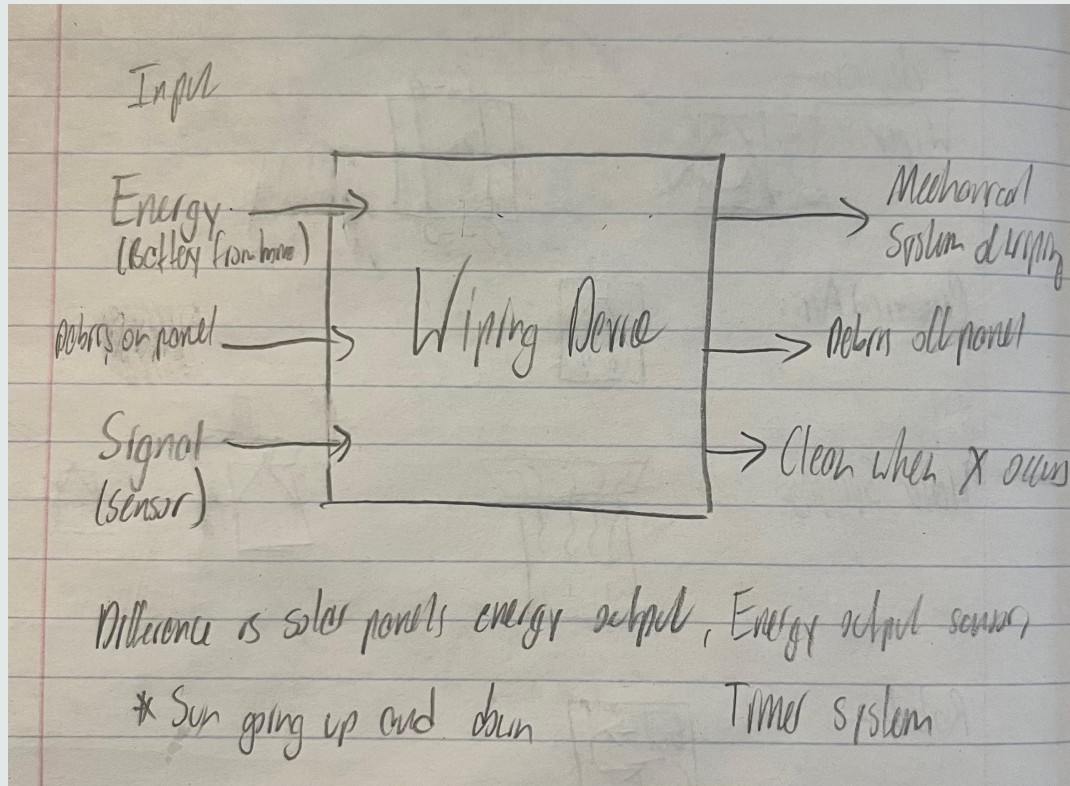 Input
Energy
(Battery from home)
Debris on panel
Signal
(sensor)
Wiping Device
Mechanical
System
Debris off panel
Clean when X occurs
Difference is solar panels energy output, Energy output sensor,
* Sun going up and down
Timer system